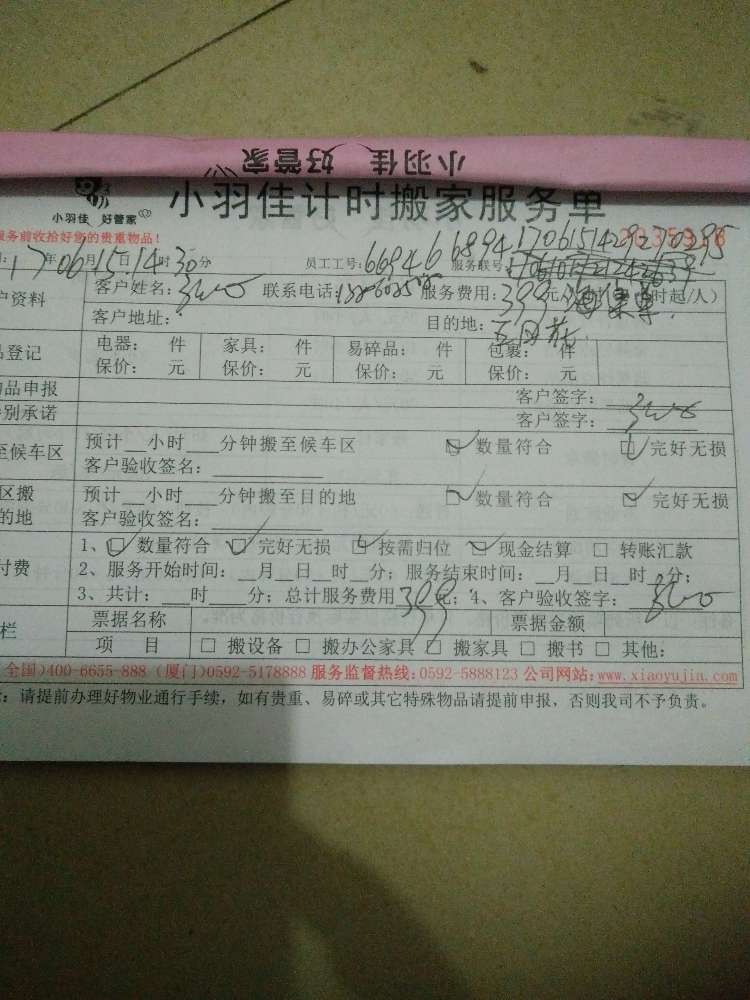 小羽佳 好管家
小羽佳 好管家
小羽佳计时搬家服务单
服务前收拾好您的贵重物品!
17年06月15日14时30分 员工工号: 66946 68941 服务联号:
客户资料 客户姓名: 联系电话: 服务费用: 399元
客户地址: 目的地:
品登记 电器: 件 家具: 件 易碎品: 件 包裹: 件
保价: 元 保价: 元 保价: 元 保价: 元
物品申报 客户签字:
特别承诺 客户签字:
至候车区 预计__小时___分钟搬至候车区 ☑ 数量符合 ☑ 完好无损
客户验收签名:
区搬 预计__小时___分钟搬至目的地 ☑ 数量符合 ☑ 完好无损
的地 客户验收签名:
1、☑ 数量符合 ☑ 完好无损 ☑ 按需归位 ☑ 现金结算 □ 转账汇款
付费 2、服务开始时间: __月__日__时__分; 服务结束时间: __月__日__时__分;
3、共计: ___时___分; 总计服务费用399元; 4、客户验收签字:
栏 票据名称 票据金额
项 目 □ 搬设备 □ 搬办公家具 □ 搬家具 □ 搬书 □ 其他:
全国)400-6655-888 (厦门)0592-5178888 服务监督热线:0592-5888123 公司网站:www.xiaoyujia.com
: 请提前办理好物业通行手续,如有贵重、易碎或其它特殊物品请提前申报,否则我司不予负责。